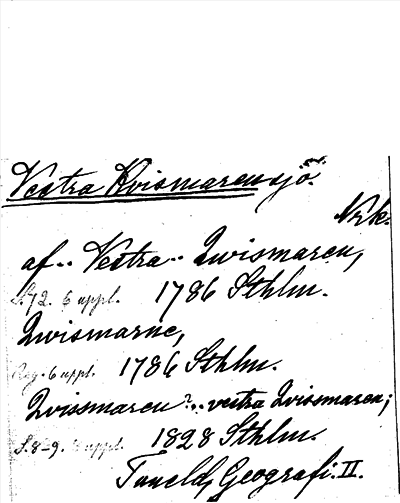 Vestra Kvismaren sjö.
Nrk.
af.. Vestra.. Qvismaren,
S.72. 6 uppl. 1786 Sthlm.
Qvismarne,
Reg. 6 uppl. 1786 Sthlm.
Qvissmaren.. vestra Qvismaren;
S.8-9. 8 uppl. 1828 Sthlm.
Tuneld, Geografi. II.